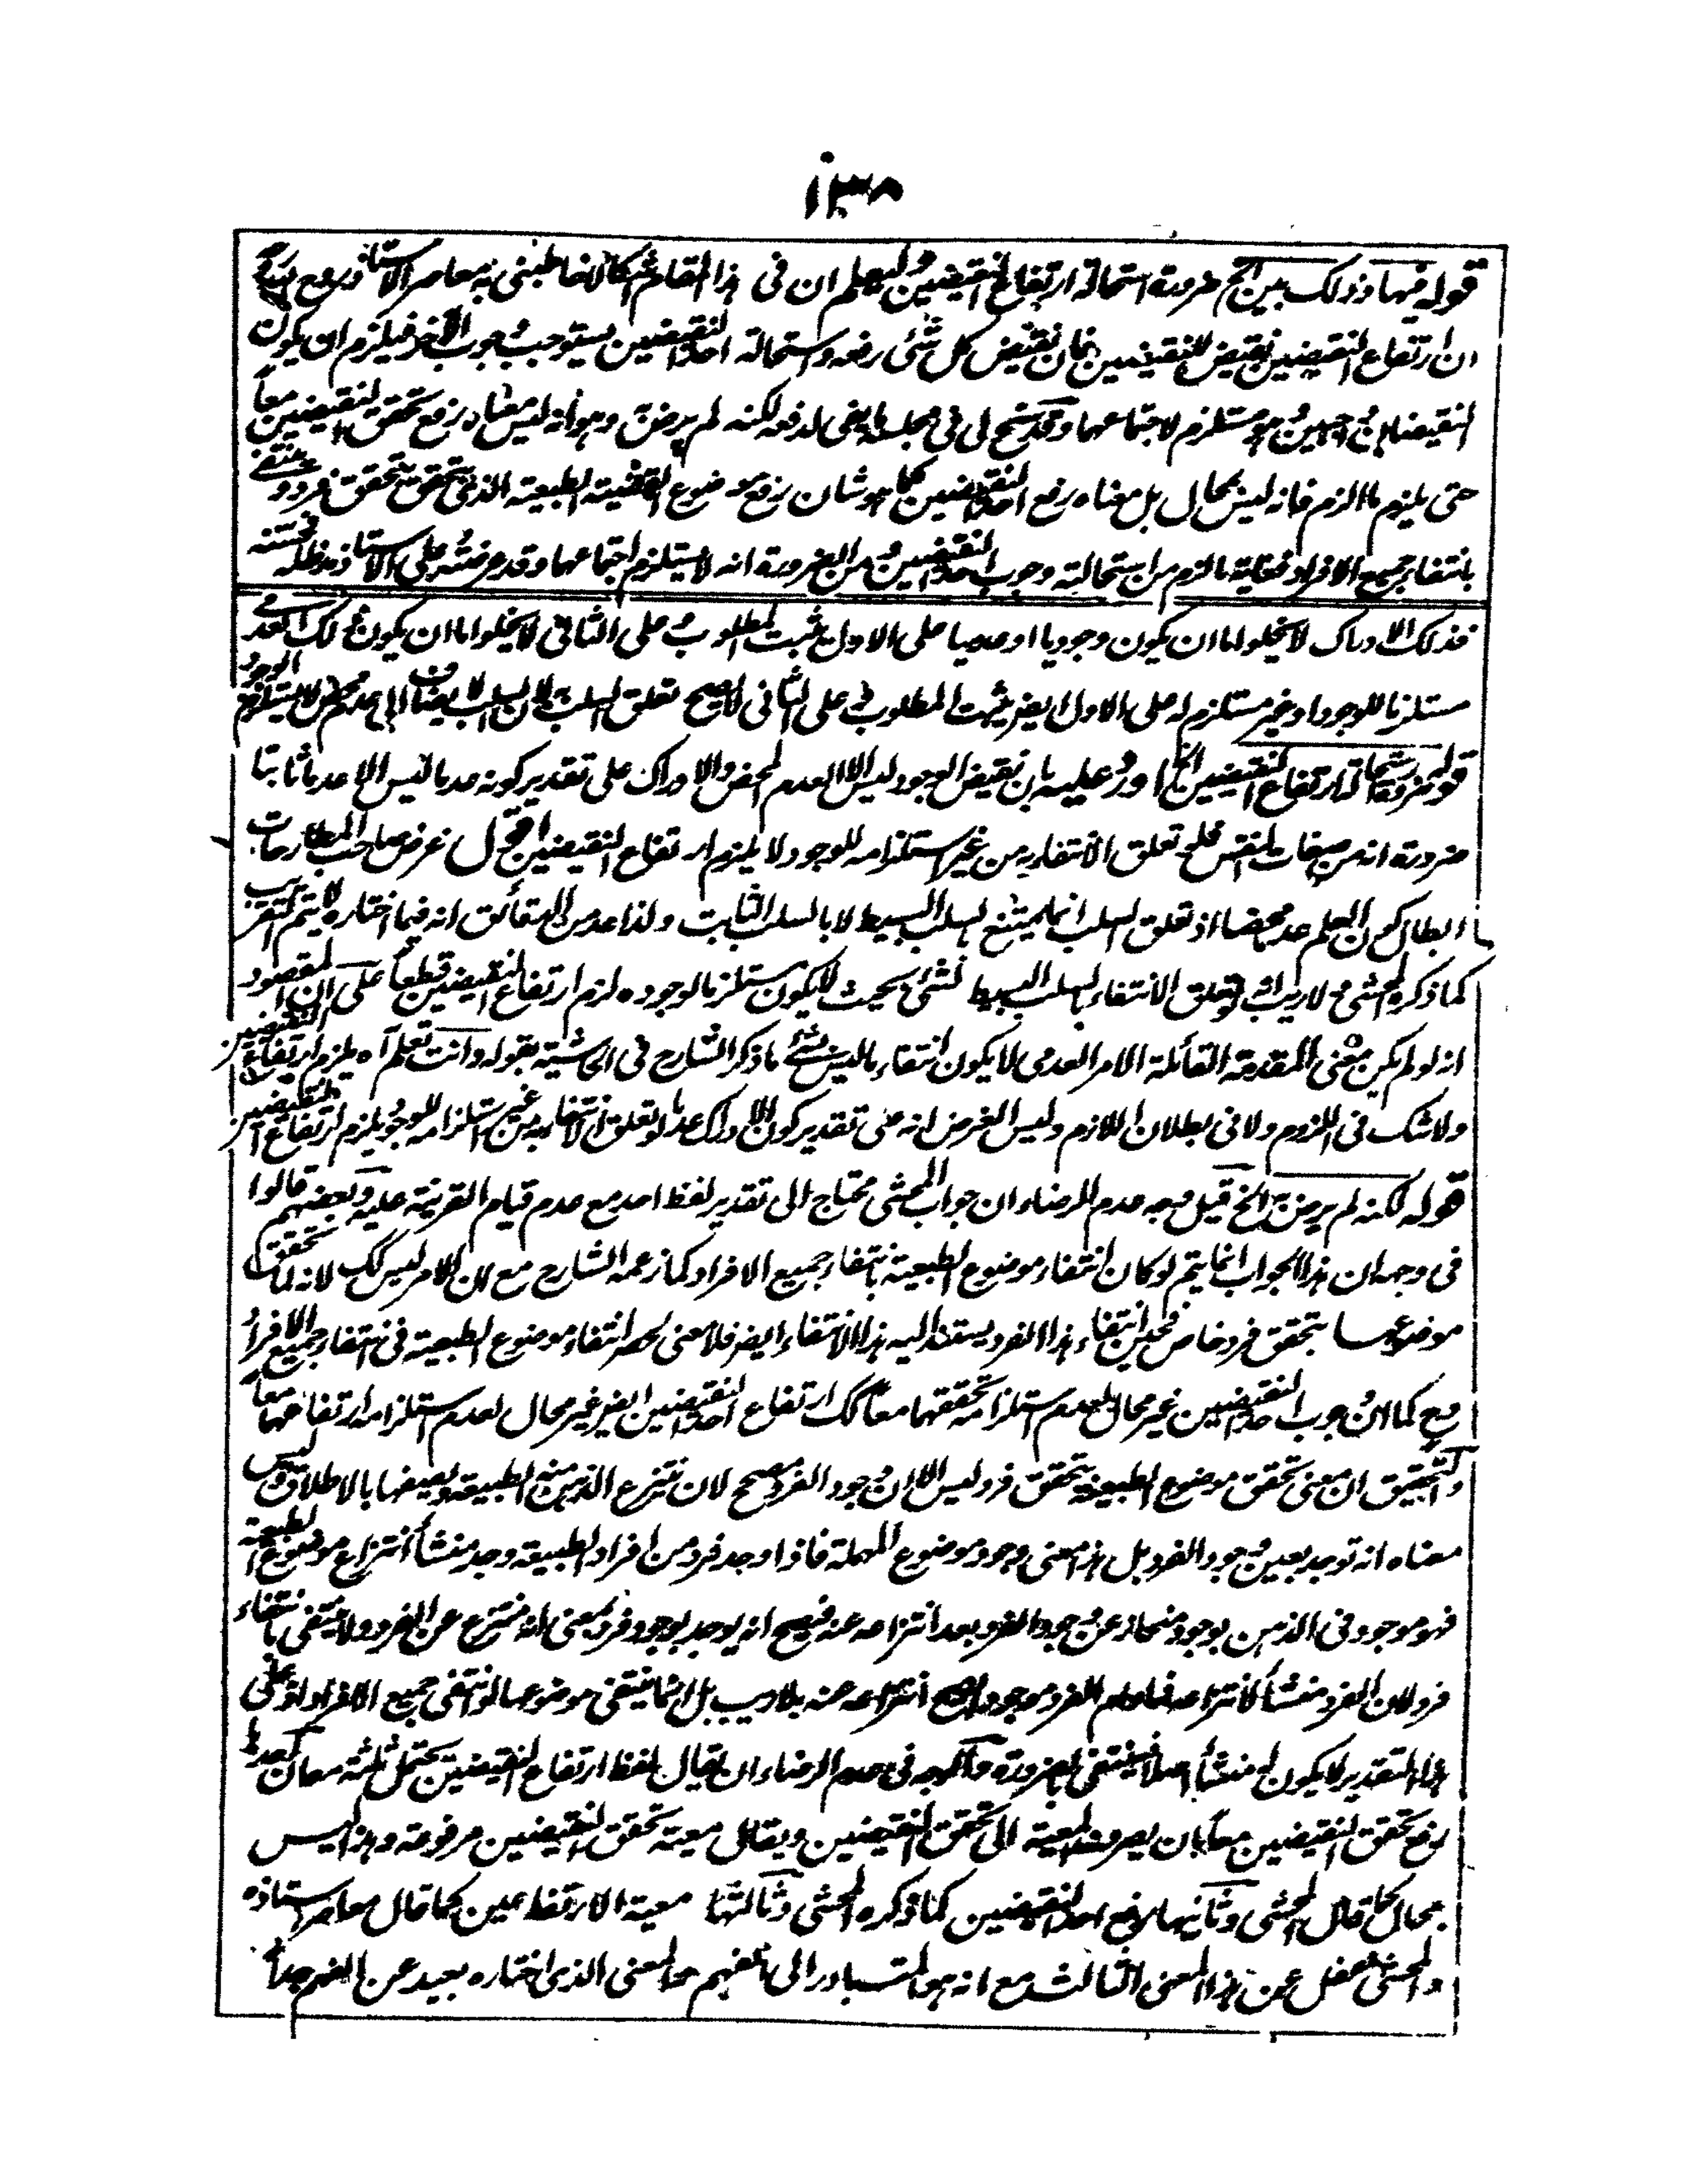 ١٣٨
قوله فيها وذلك بين الخ ضرورة استحالة ارتفاع النقيضين وليعلم ان فى هذا المقام اشكالا خاطبنى به معاصر الاستاذ وهو
ان ارتفاع النقيضين نقيض للنقيضين فان نقيض كل شئى رفعه واستحالة احد النقيضين يستوجب وجوب الآخر فيلزم ان يكون
النقيضان واجبين وهو مستلزم لاجتماعهما وقد سنح لى فى مجلسه ما يفى لدفعه لكنه لم يرض به وهو انه ليس معناه رفع تحقق النقيضين معاً
حتى يلزم ما الزم فانه ليس بمحال بل معناه رفع احد النقيضين كما هو شان رفع موضوع القضية الطبيعة الذى تحقق بتحقق فرد وينتفى
بانتفاء جميع الافراد فغاية ما لزم من استحالته وجوب احد النقيضين ومن الضرورة انه لا يستلزم اجتماعهما وقد عرضته على الاستاذ مدظله فحسنه
فذلك الادراك لا يخلو اما ان يكون وجوديا او عدميا على الاول يثبت المطلوب وعلى الثانى لا يخلو اما ان يكون ذلك العدمى
مستلزما للوجود او غير مستلزم له على الاول ايضا يثبت المطلوب وعلى الثانى لا يصح تعلق السلب به لان السلب لا يضاف الى عدم محض لا يستلزم الوجود
قوله ضرورة استحالة ارتفاع النقيضين الخ اورد عليه بان نقيض الوجود ليس الا العدم المحض والادراك على تقدير كونه عدما ليس الا عدما ثابتا
ضرورة انه من صفات النفس فلو تعلق الانتفاء به من غير استلزامه للوجود لا يلزم ارتفاع النقيضين اقول غرض صاحب المطارحات
ابطال كون العلم عدما محضا اذ تعلق السلب انما يمتنع بالسلب البسيط لا بالسلب الثابت ولذا عد من الدقائق انه فيما اختاره لا يتم التقريب
كما ذكره المحشى ولا ريب انه لو تعلق الانتفاء بالسلب البسيط لشئ بحيث لا يكون مستلزما لوجوده لزم ارتفاع النقيضين قطعاً على ان المقصود
انه لو لم يكن معنى المقدمة القائلة الامر العدمى لا يكون انتفاء ما ليس بشئ ما ذكر الشارح فى الحاشية بقوله وانت تعلم آه يلزم ارتفاع النقيضين
ولا شك فى اللزوم ولا فى بطلان اللازم وليس الغرض انه على تقدير كون الادراك عدما لو تعلق الانتفاء به من غير استلزامه للوجود يلزم ارتفاع النقيضين
قوله لكنه لم يرض به الخ قيل وجه عدم الرضاء ان جواب المحشى محتاج الى تقدير لفظ احد مع عدم قيام القرينة عليه وبعضهم قالوا
فى وجهه ان هذا الجواب انما يتم لو كان انتفاء موضوع الطبعية بانتفاء جميع الافراد كما زعمه الشارح مع ان الامر ليس كك لانه لما تحقق
موضوعها بتحقق فرد خاص فحين انتفاء هذا الفرد يستند اليه هذا الانتفاء ايضا فلا معنى لحصر انتفاء موضوع الطبعية فى انتفاء جميع الافراد
وح كما ان وجوب احد النقيضين غير محال لعدم استلزامه تحققهما معا كك ارتفاع احد النقيضين ايضا غير محال لعدم استلزامه ارتفاعهما معاً
والتحقيق ان معنى تحقق موضوع الطبعية بتحقق فرد ليس الا ان وجود الفرد مصحح لان تنتزع الذهن منه الطبيعة ويصفها بالاطلاق وليس
معناه انه توجد بعين وجود الفرد بل هذا معنى وجود موضوع المهملة فاذا وجد فرد من افراد الطبيعة وجد منشأ انتزاع موضوع الطبعية
فهو موجود فى الذهن بوجود منحاز عن وجود الفرد بعد انتزاعه عنه فيصح انه يوجد بوجود فرد بمعنى انه منتزع عن الفرد ولا ينتفى بانتفاء
فرد لان الفرد منشأ لانتزاعه فما دام الفرد موجودا يصح انتزاعه عنه بلا ريب بل انما ينتفى موضوعها لو انتفى جميع الافراد اذ على
هذا التقدير لا يكون له منشأ اصلا فينتفى بالضرورة والوجه فى عدم الرضاء ان يقال لفظ ارتفاع النقيضين يحتمل ثلثة معان احدها
رفع تحقق النقيضين معاً بان يصرف المعية الى تحقق النقيضين ويقال معية تحقق النقيضين مرفوعة وهذا ليس
بمحال كما قال المحشى وثانيها رفع احد النقيضين كما ذكره المحشى وثالثها معية الارتفاعين كما قال معاصر استاذه
والمحشى غفل عن هذا المعنى الثالث مع انه هو المتبادر الى الفهم والمعنى الذى اختاره بعيد عن الفهم جداً